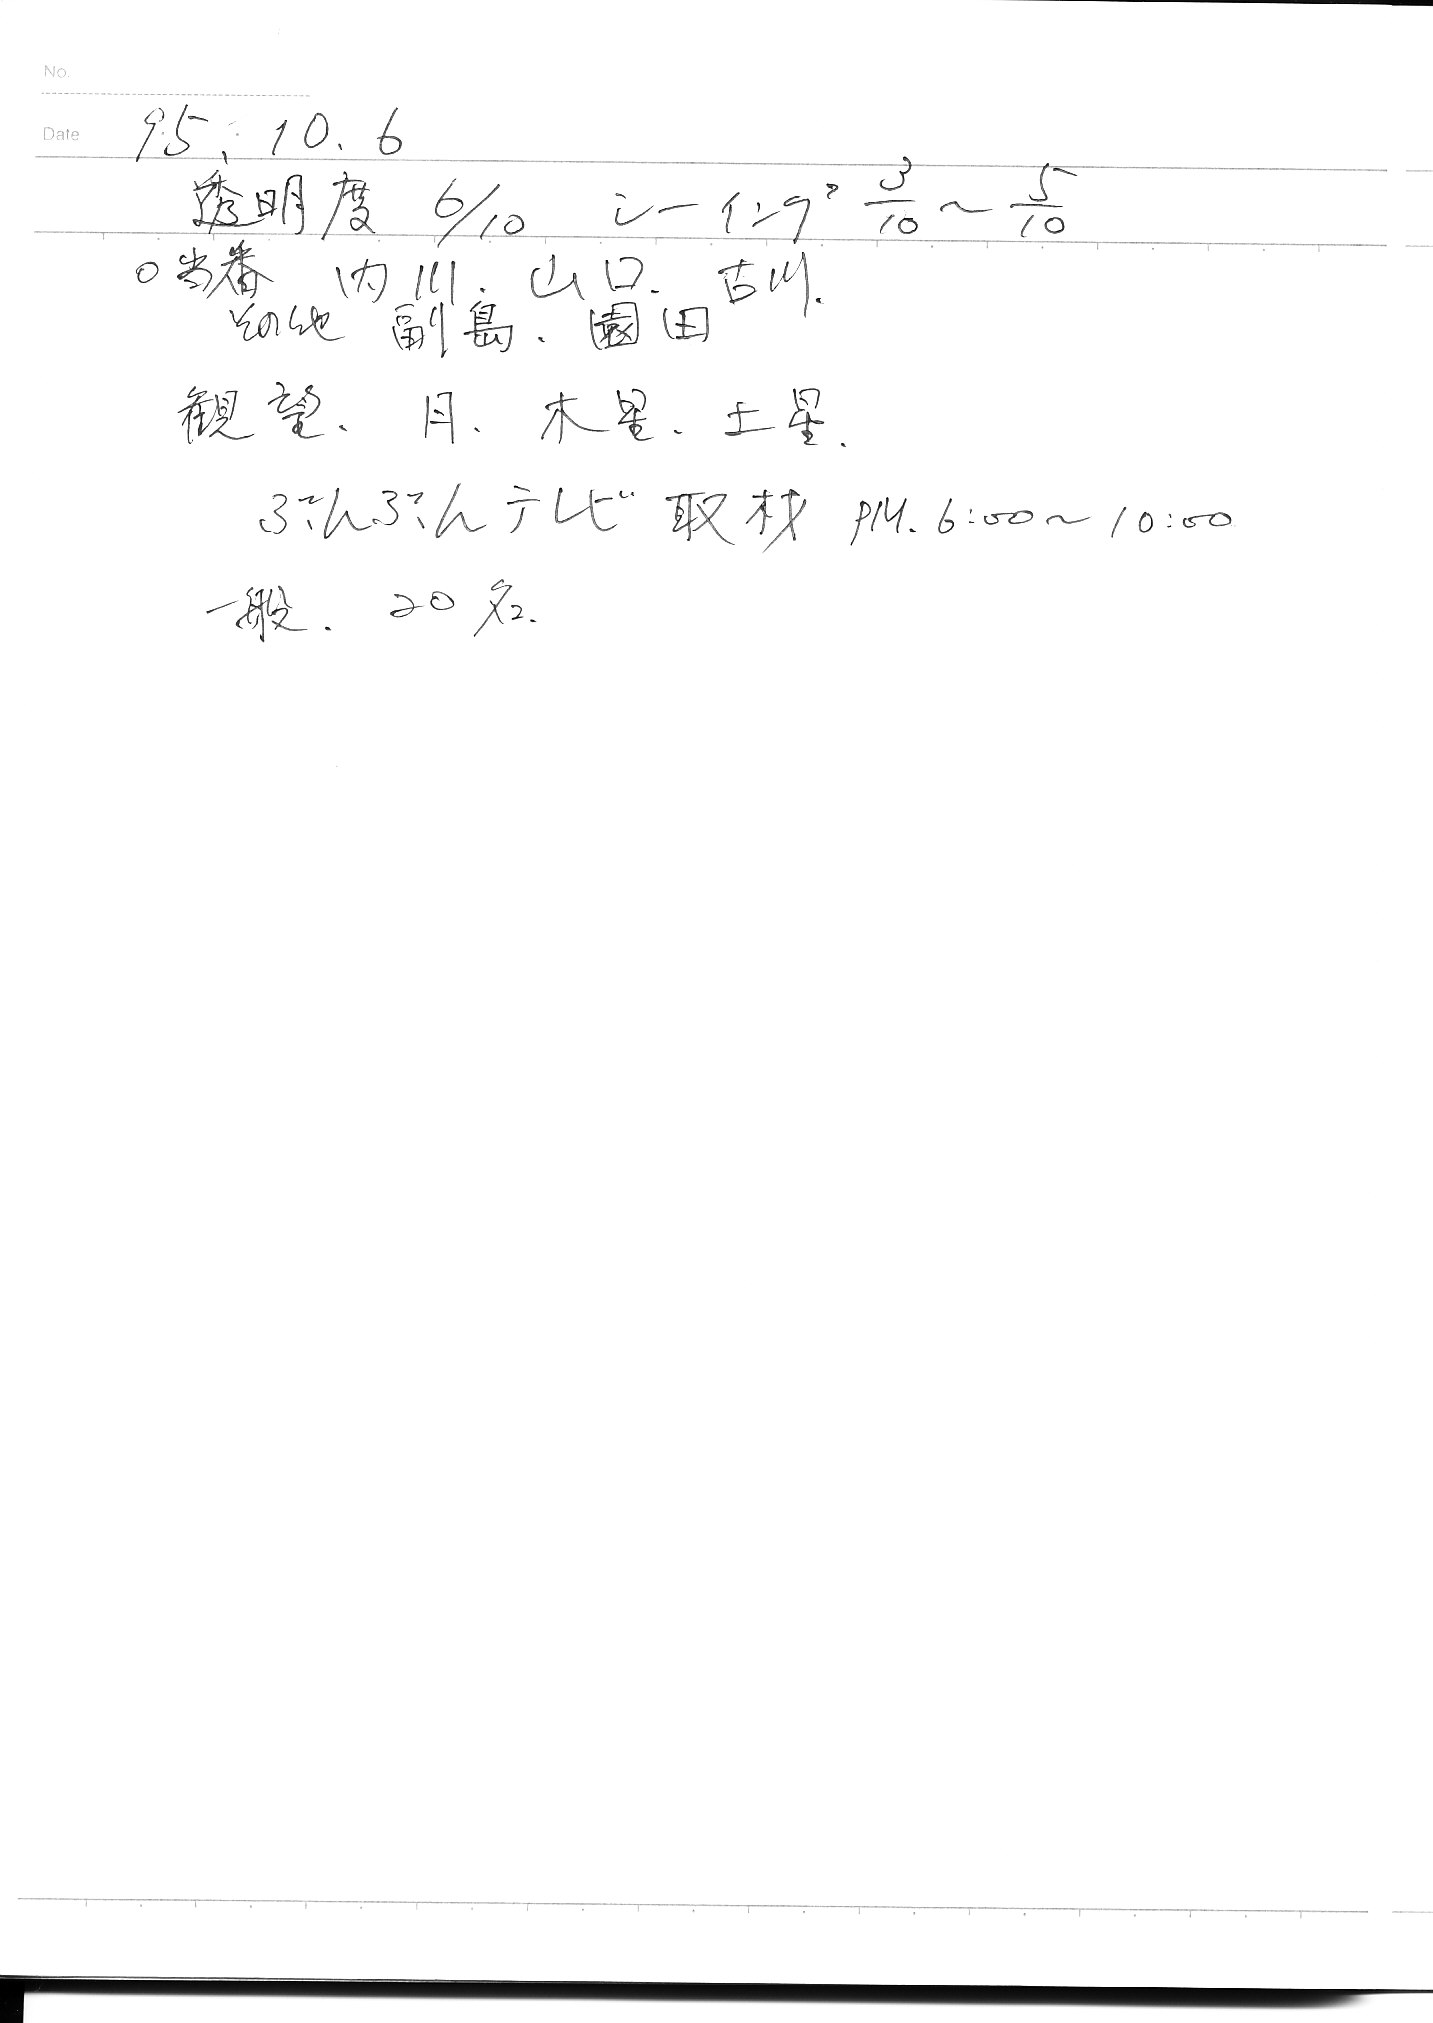 No.
Date 95. 10. 6
透明度 6/10 シーイング 3/10 ～ 5/10
○当番 内川. 山口. 古川.
その他 副島. 園田
観望. 月. 木星. 土星.
ぶんぶんテレビ 取材 PM. 6:00～10:00
一般. 20名.